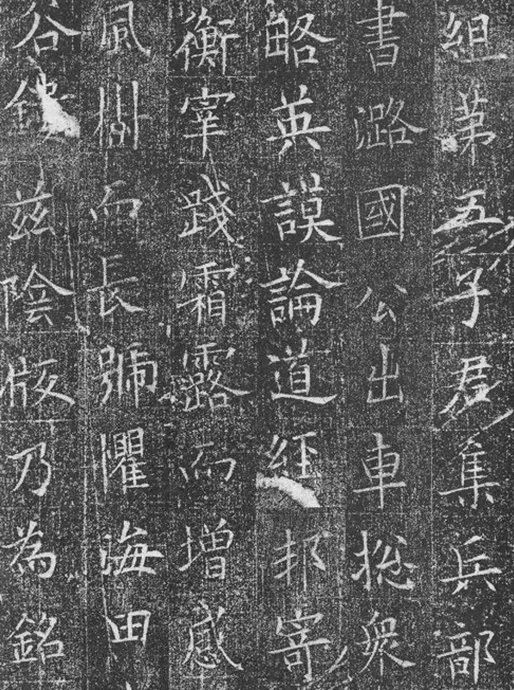 組第五子君集兵部
書潞國公出車揔衆
略英謨論道經邦寄
衡宰踐霜露而増感
風樹而長號懼海田
谷鏤茲陰版乃為銘